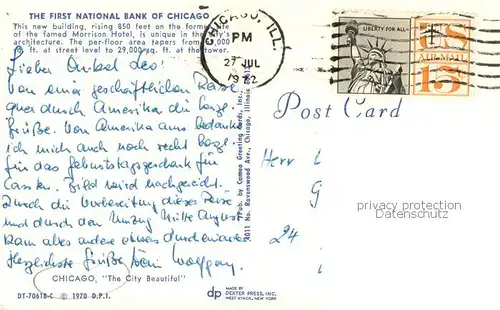 THE FIRST NATIONAL BANK OF CHICAGO
This new building, rising 850 feet on the former site
of the famed Morrison Hotel, is unique in the city's
architecture. The per-floor area tapers from
ft. at street level to 29,000 sq. ft. at the tower.
CHICAGO, ILL.
PM
27 JUL
1972
LIBERTY FOR ALL
US
AIR MAIL
15¢
Post Card
Lieber Onkel Leo!
Von einer geschäftlichen Reise
quer durch Amerika die herzl.
Grüße. Von Amerika aus bedanke
ich mich auch noch recht herzl.
für das Geburtstagsgeschenk für
Carsten. Bild wird nachgereicht.
Durch die Vorbereitung dieser Reise
und durch den Umzug Mitte August
kam alles andere etwas durcheinander
Herzlichste Grüße Dein Wolfgang.
Herr L
G
24
privacy permission
Datenschutz
Pub. by Cameo Greeting Cards, Inc.
3011 No. Ravenswood Ave., Chicago, Illinois
CHICAGO, "The City Beautiful"
DT-70618-C © 1970 D.P.I.
dp
MADE BY
DEXTER PRESS, INC.
WEST NYACK, NEW YORK